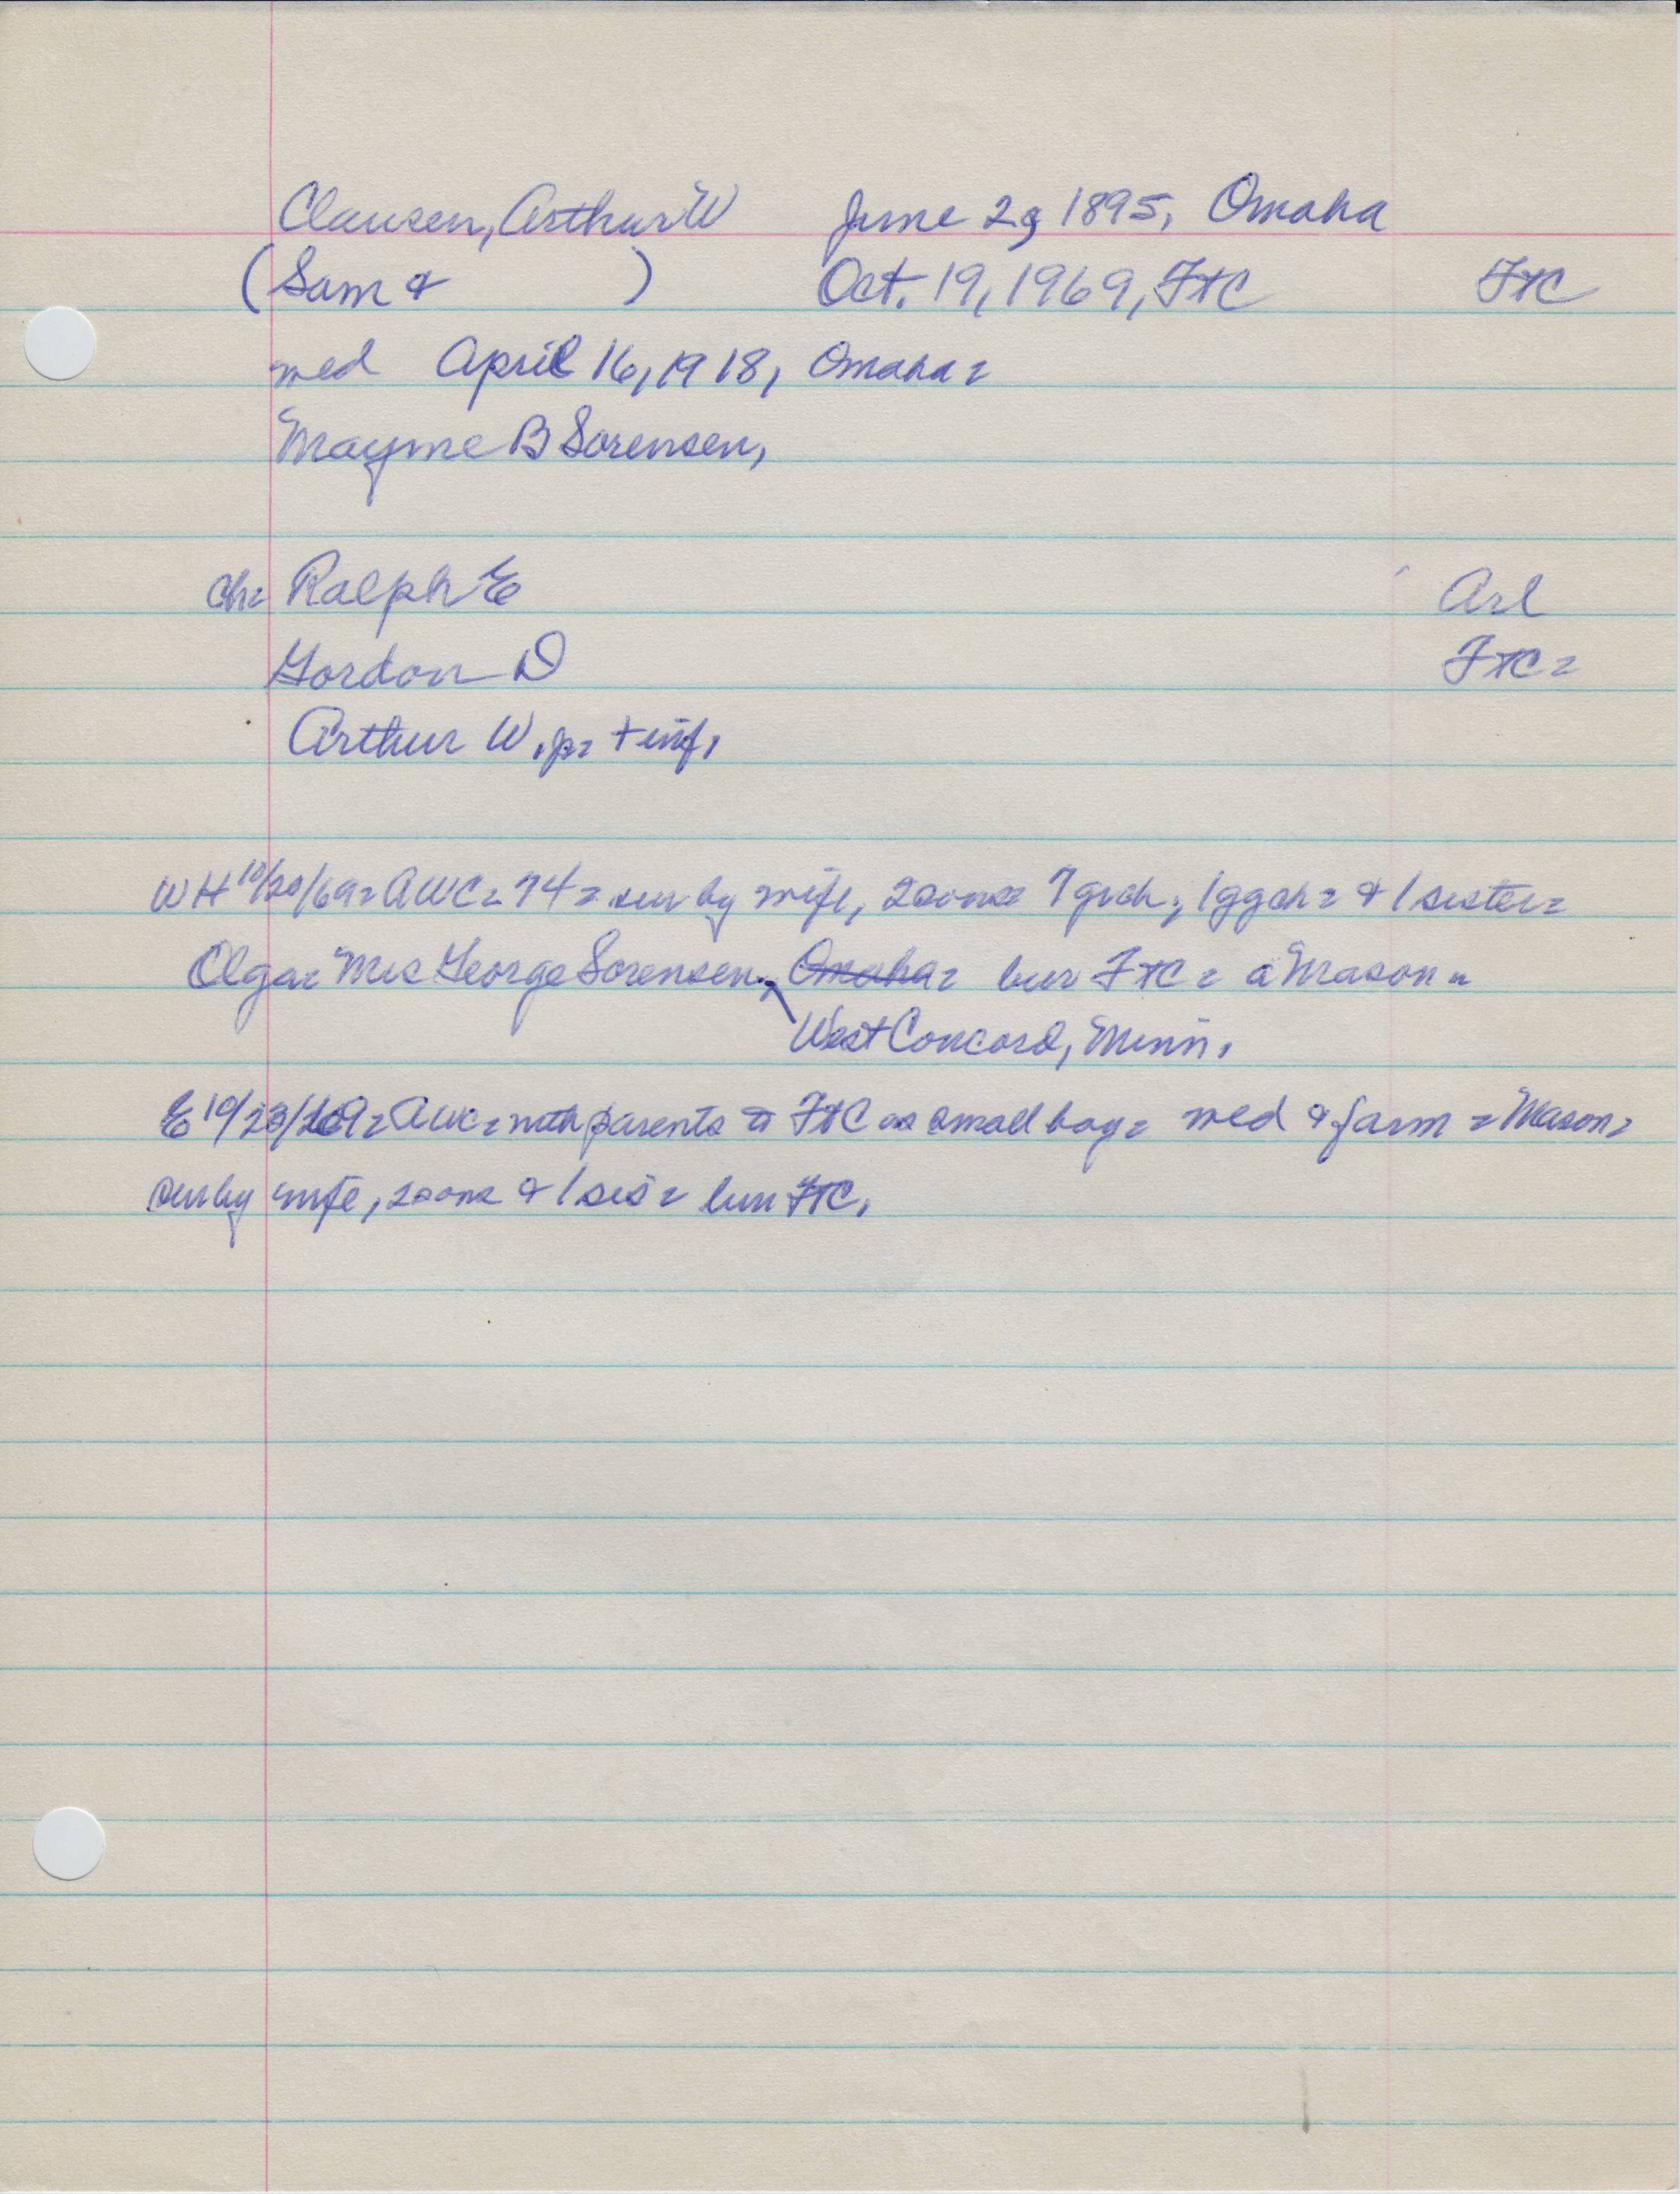 Clausen, Arthur W June 29, 1895, Omaha
(Sam & ) Oct. 19, 1969, FtC FtC
med April 16, 1918, Omaha=
Mayme B Sorensen,
ch= Ralph E Arl
Gordon D FtC=
Arthur W. jr= + inf,
WH 10/20/69= AWC= 74= sur by wife, 2 sons= 7 grch, 1 ggch= & 1 sister=
Olga= Mrs George Sorensen, Omaha= bur FtC= a Mason=
West Concord, Minn.
E 10/23/69= AWC= with parents to FtC as small boy= med & farm = Mason=
sur by wife, 2 sons & 1 sis= bur FtC.